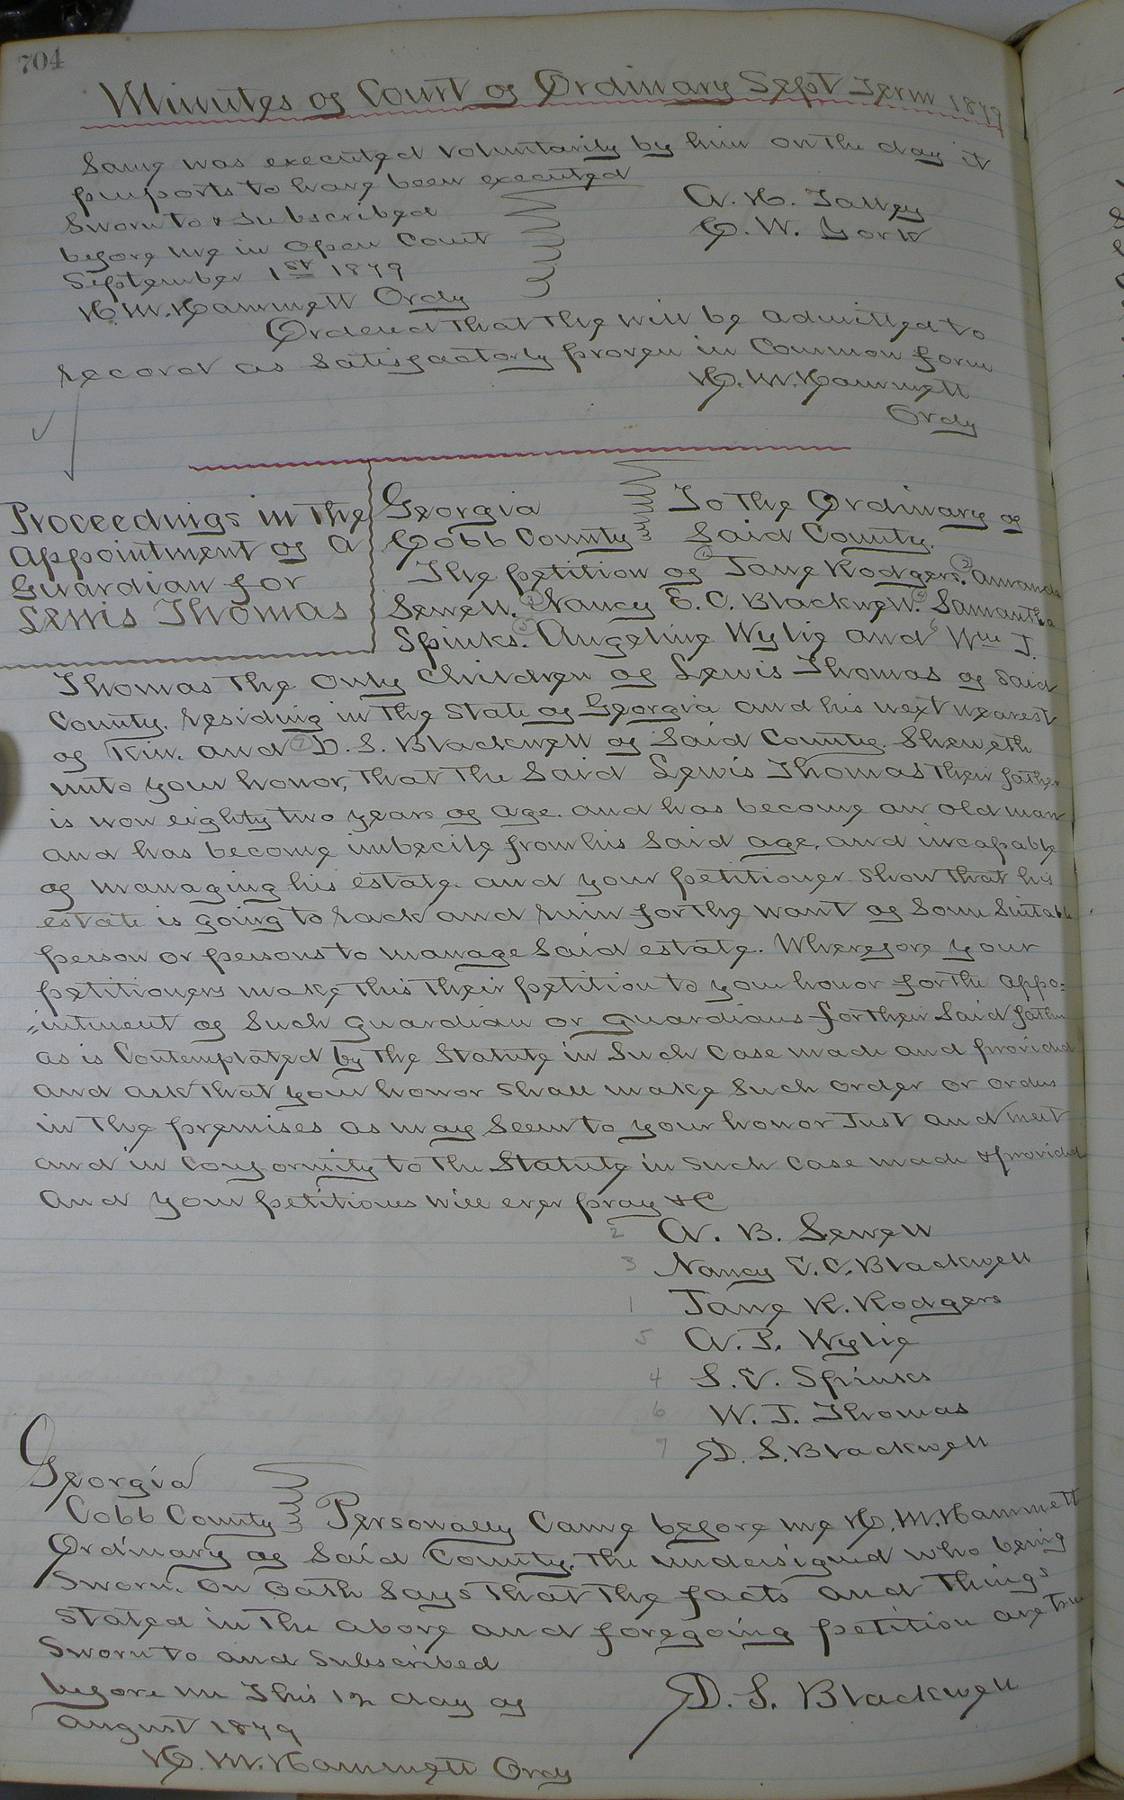 704
Minutes of Court of Ordinary Sept Term 1879
Same was executed voluntarily by him on the day it
purports to have been executed
Sworn to & Subscribed
before me in open Court
September 1st 1879
H. M. Hammett Ordy
A. H. Talley
C. W. York
Ordered that the will be admitted to
record as satisfactorly proven in Common form
H. M. Hammett
Ordy
Proceedings in the
Appointment of A
Guardian for
Lewis Thomas
Georgia
Cobb County
To the Ordinary of
Said County.
The petition of 1 Jane Rodgers. 2 Amanda
Sewell. 3 Nancy E. C. Blackwell. 4 Samantha
Spinks. 5 Angeline Wylie and 6 Wm J.
Thomas the only children of Lewis Thomas of said
County. residing in the State of Georgia and his next nearest
of Kin. and 7 D. S. Blackwell of Said County. Sheweth
unto your honor, that the Said Lewis Thomas their father
is now eighty two years of age. and has become an old man
and has become imbecile from his said age. and incapable
of managing his estate. and your petitioner show that his
estate is going to rack and ruin for the want of some suitable
person or persons to manage said estate. Wherefore your
petitioners make this their petition to your honor for the appo=
=intment of such guardian or guardians for their said father
as is Contemplated by the Statute in such case made and provided
and ask that your honor shall make such order or orders
in the premises as may seem to your honor Just and meet
and in conformity to the Statute in such case made & provided
And your petitions will ever pray &C
2 A. B. Sewell
3 Nancy E. C. Blackwell
1 Jane R. Rodgers
5 A. P. Wylie
4 S. E. Spinks
6 W. J. Thomas
7 D. S. Blackwell
Georgia
Cobb County
Personally came before me H. M. Hammett
Ordinary of Said County. the undersigned who being
Sworn. on oath says that the facts and things
stated in the above and foregoing petition are true
Sworn to and subscribed
before me This 12 day of
August 1879
H. M. Hammett Ordy
D. S. Blackwell